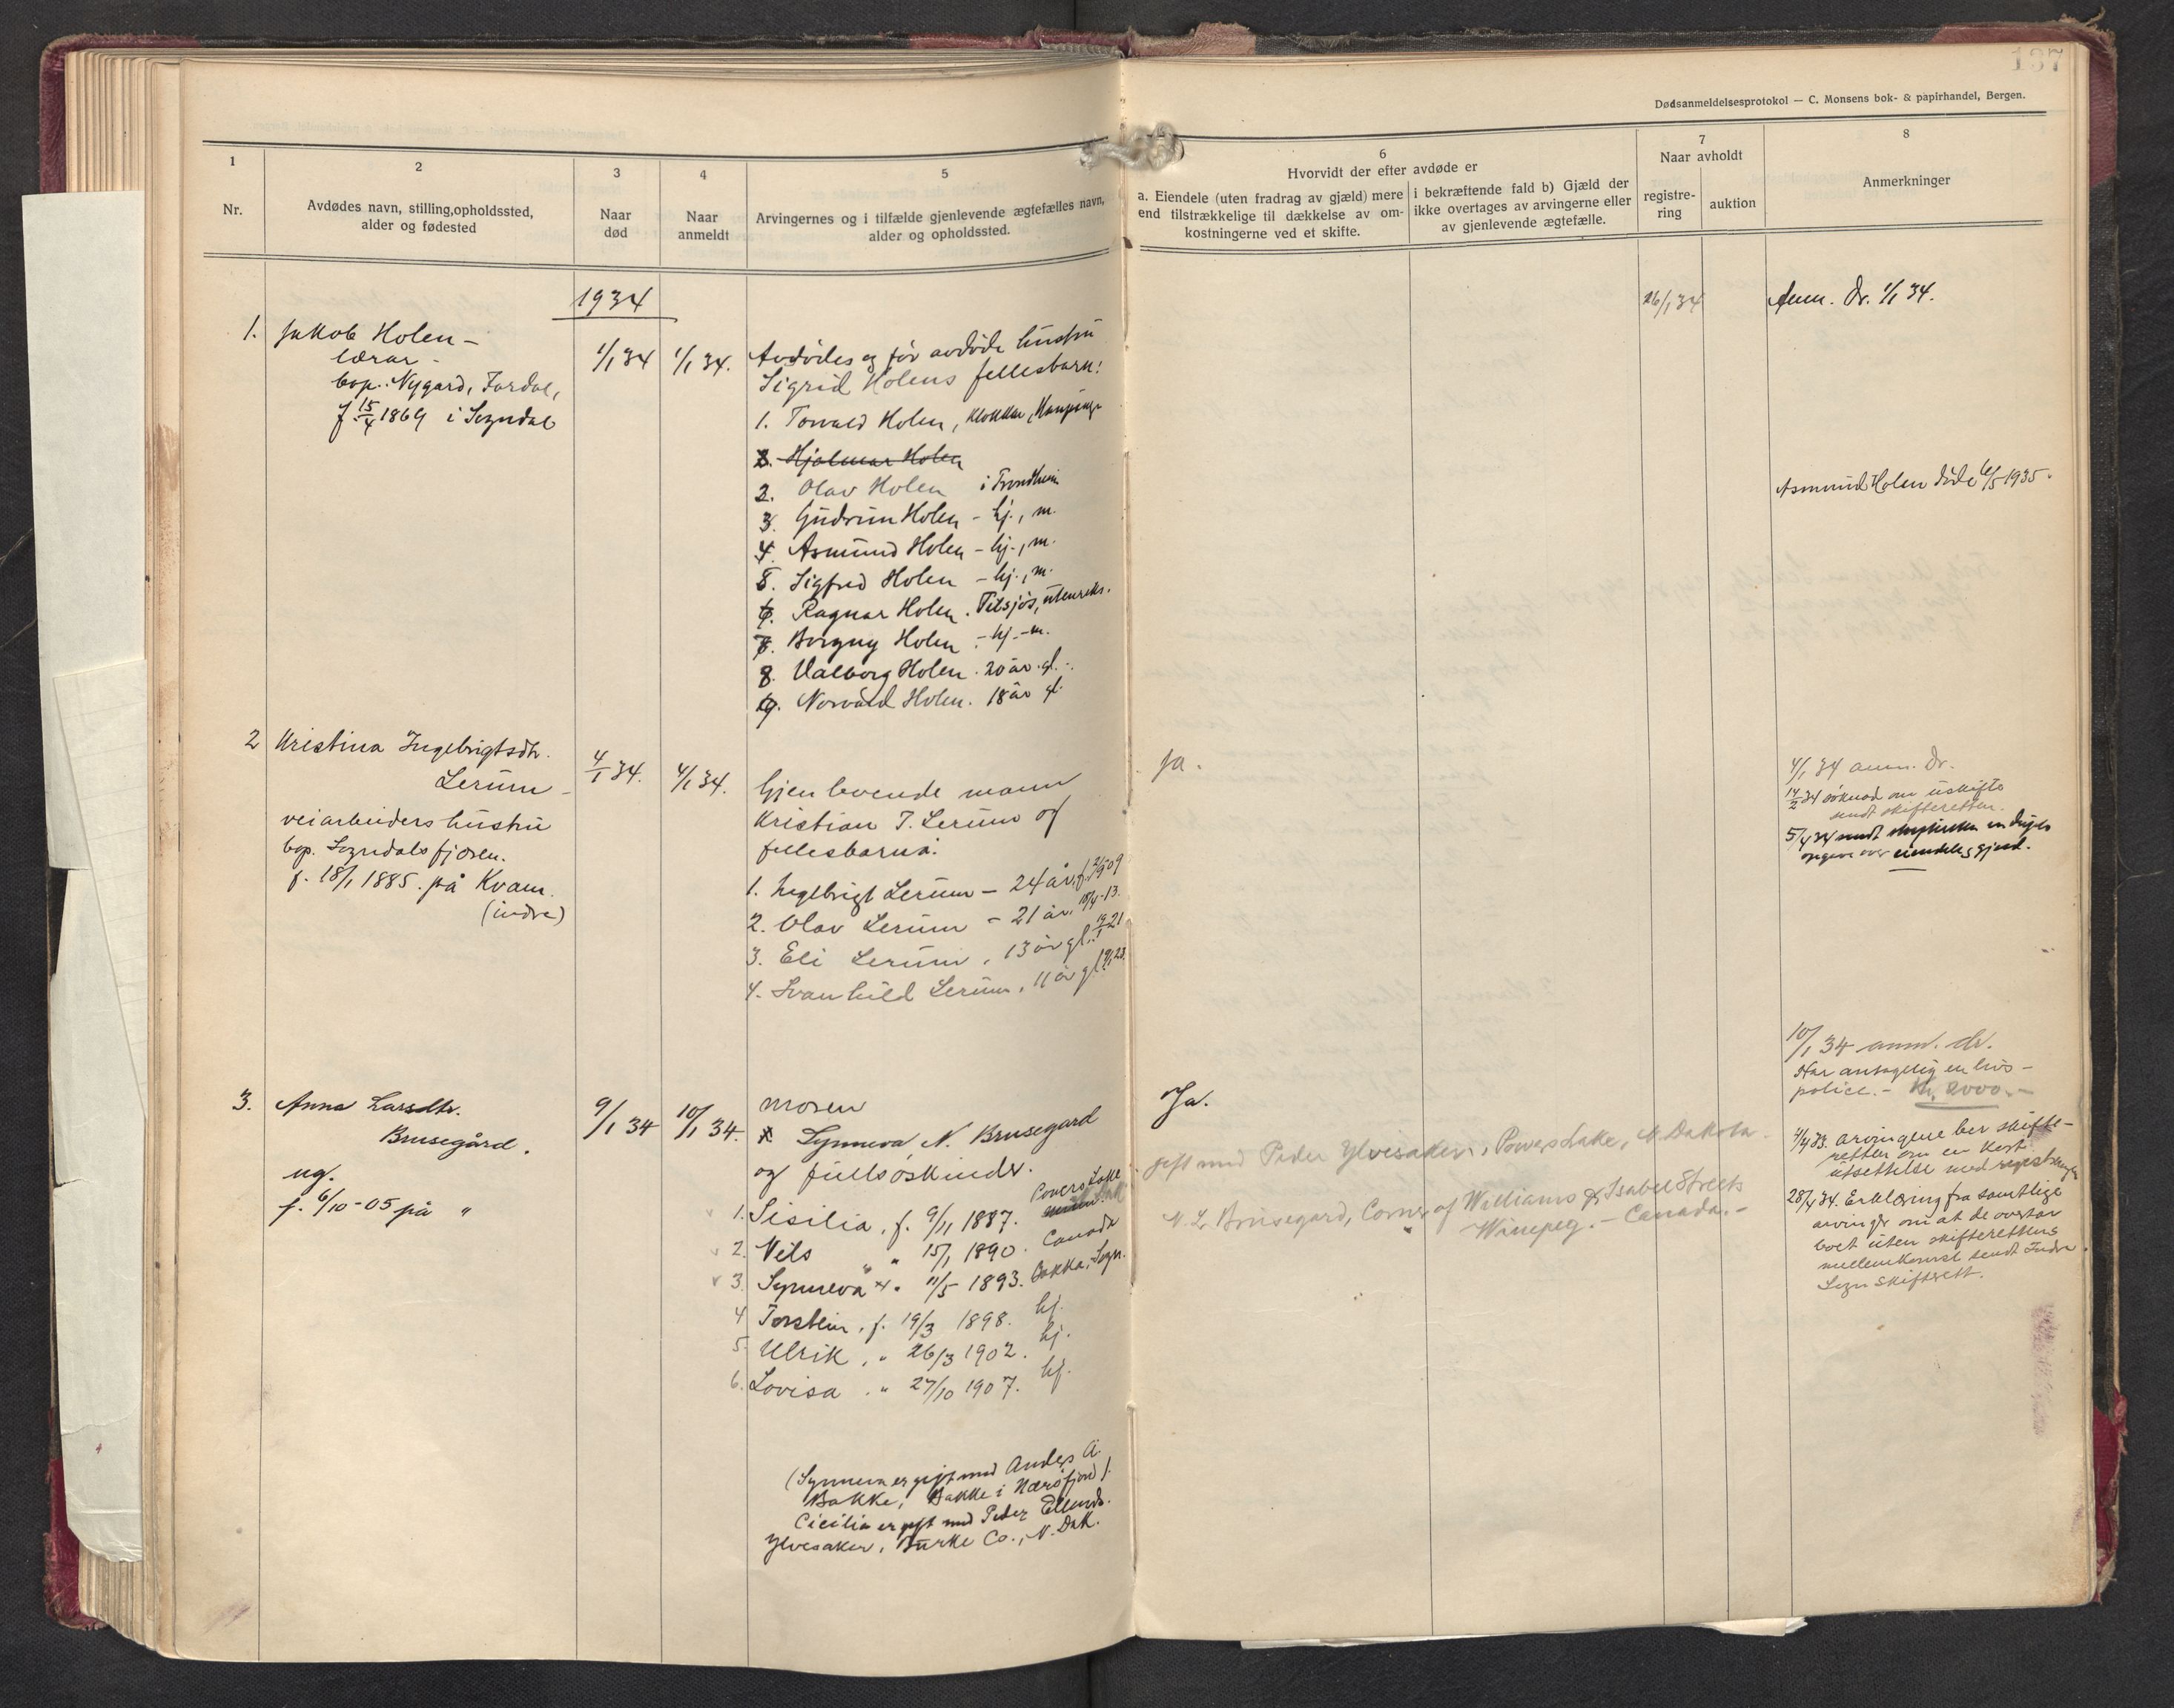 137
Dødsanmeldelsesprotokol — C. Monsens bok- & papirhandel, Bergen.
1
Nr.
2
Avdødes navn, stilling, opholdssted,
alder og fødested
3
Naar
død
4
Naar
anmeldt
5
Arvingernes og i tilfælde gjenlevende ægtefælles navn,
alder og opholdssted.
6
Hvorvidt der efter avdøde er
a. Eiendele (uten fradrag av gjæld) mere
end tilstrækkelige til dækkelse av om-
kostningerne ved et skifte.
i bekræftende fald b) Gjæld der
ikke overtages av arvingerne eller
av gjenlevende ægtefælle.
7
Naar avholdt
registre-
ring
auktion
8
Anmerkninger
1934
1. Jakob Holen –
lærar –
bop. Nygard, Fardal,
f. 15/4 1869 i Sogndal
1/1 34
1/1 34.
Avdødes og før avdøde hustru
Sigrid Holens fellesbarn:
1. Torvald Holen, klokkar,
Hjalmar Holen
2. Olav Holen i Trondheim
3. Gudrun Holen – hj., m.
4. Asmund Holen – hj., m.
5. Sigfred Holen – hj., m.
6. Ragnar Holen. Tilsjøs, utenriks.
7. Borgny Holen – hj. – m.
8. Valborg Holen. 20 år gl. –.
9. Norvald Holen. 18 år gl.
26/1 34
Anm. Dr. 1/1 34.
Asmund Holen døde 6/5 1935.
2 Kristina Ingebrigtsdtr.
Lerum –
veiarbeiders hustru
bop. Sogndalsfjøren.
f. 18/1 1885. på Kvam.
(indre)
4/1 34.
4/1 34.
Gjenlevende mann
Kristian T. Lerum og
fellesbarna:
1. Ingebrigt Lerum – 24 år, f. 2/9 09
2. Olav Lerum – 21 år. 18/4-13.
3. Eli Lerum. 13 år gl. 19/1 21
4. Svanhild Lerum. 11 år gl.
Ja.
4/1 34 anm. Dr.
14/2 34 søknad om uskifte
sendt skifteretten.
5/4 34 sendt skifteretten
opgave over eiendeler, gjeld.
3. Anna Larsdtr.
Brusegård.
ug.
f. 6/10-05 på "
9/1 34
10/1 34.
moren
Synneva N. Brusegard
og fullsøskinder.
1. Sisilia, f. 9/11 1887. Powers Lake
2. Nels " " 15/1 1890. Canada
3. Synneva " 11/5 1893. Bakka, Sogn.
4 Torstein, f. 19/3 1898. hj.
5. Ulrik, " 26/3 1902. hj.
6. Lovisa. " 27/10 1907. hj.
(Synneva er gift med Anders A.
Bakke, Bakke i Nærøfjord).
Cicilia er gift med Peder Ellends.
Ylvesaker, Burke Co., N. Dak.
Ja.
gift med Peder Ylvisaker, Powers Lake, N. Dakota.
N. L. Brusegard, Corner of Williams & Isabel Streets
Winepeg. – Canada. –
10/1 34 anm. dr.
Har antagelig en livs-
police. – Kr. 2000. –
arvingene ber skifte-
retten om en kort
utsettelse med registreringen
28/4 34. Erklæring fra samtlige
arvinger om at de overtar
boet uten skifterettens
mellemkomst sendt Indre
Sogn skifterett.